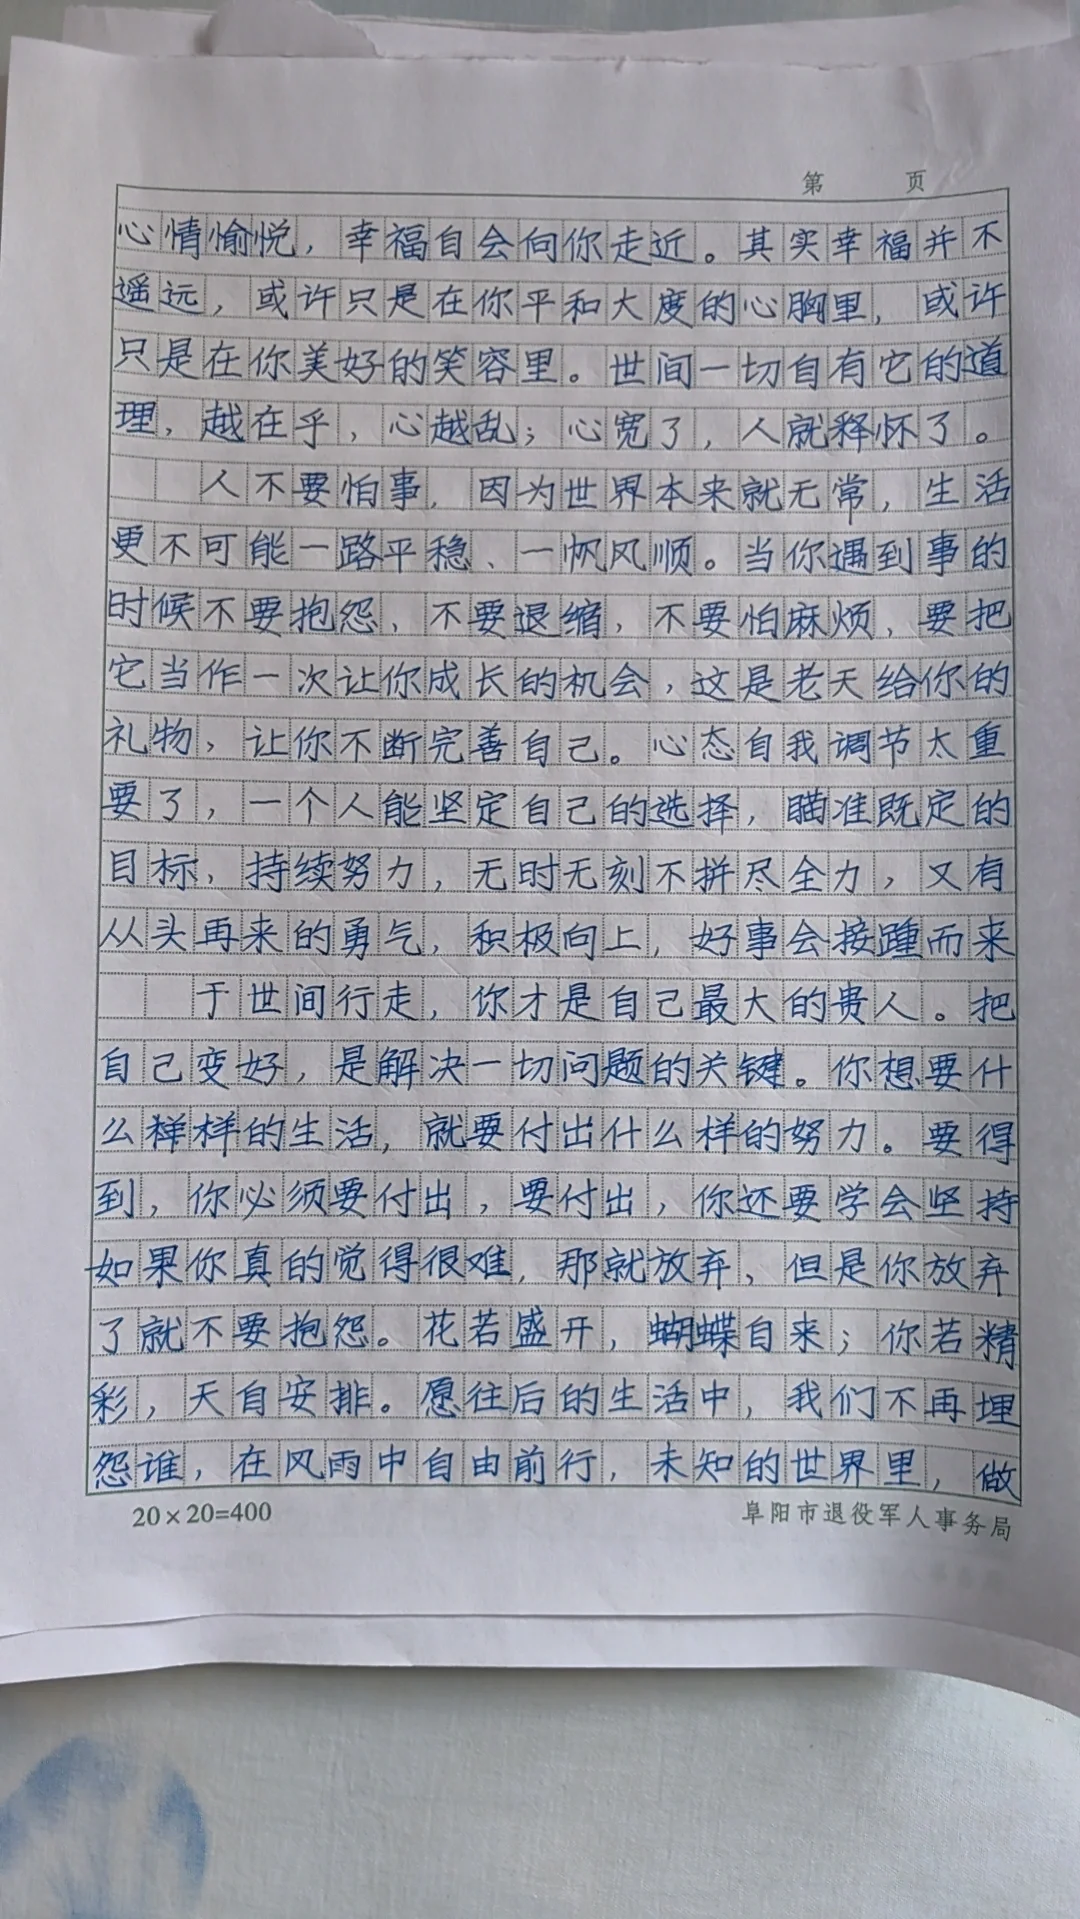 第 页
心情愉悦，幸福自会向你走近。其实幸福并不
遥远，或许只是在你平和大度的心胸里，或许
只是在你美好的笑容里。世间一切自有它的道
理，越在乎，心越乱；心宽了，人就释怀了。
人不要怕事，因为世界本来就无常，生活
更不可能一路平稳、一帆风顺。当你遇到事的
时候不要抱怨，不要退缩，不要怕麻烦，要把
它当作一次让你成长的机会，这是老天给你的
礼物，让你不断完善自己。心态自我调节太重
要了，一个人能坚定自己的选择，瞄准既定的
目标，持续努力，无时无刻不拼尽全力，又有
从头再来的勇气，积极向上，好事会接踵而来
于世间行走，你才是自己最大的贵人。把
自己变好，是解决一切问题的关键。你想要什
么样样的生活，就要付出什么样的努力。要得
到，你必须要付出，要付出，你还要学会坚持
如果你真的觉得很难，那就放弃，但是你放弃
了就不要抱怨。花若盛开，蝴蝶自来；你若精
彩，天自安排。愿往后的生活中，我们不再埋
怨谁，在风雨中自由前行，未知的世界里，做
20×20=400
阜阳市退役军人事务局